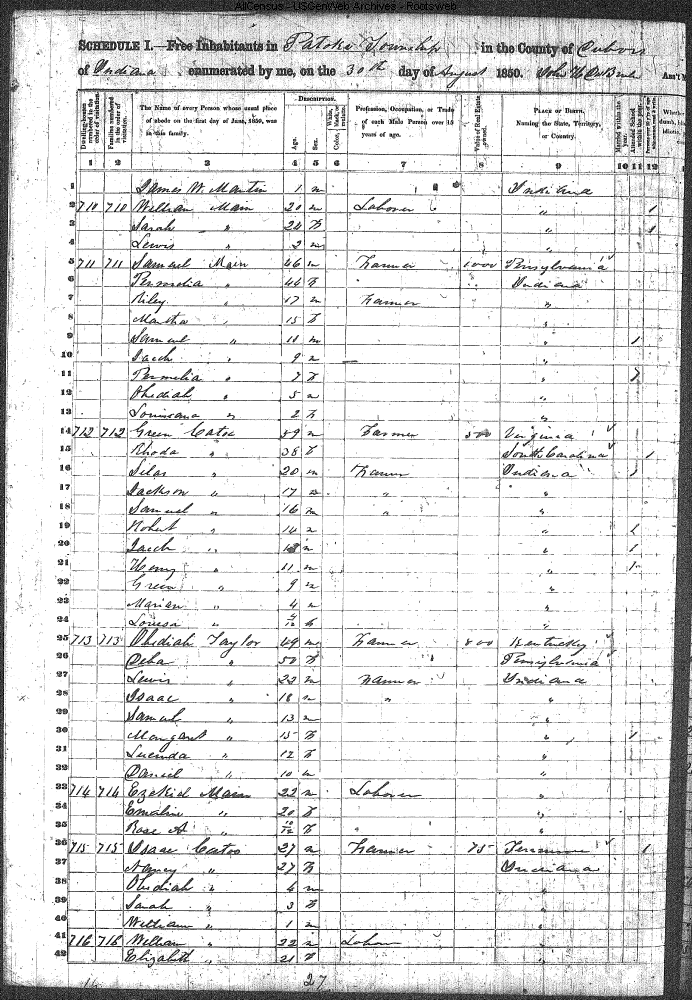 AllCensus - USGenWeb Archives - Rootsweb
SCHEDULE I.—Free Inhabitants in Patoka Township in the County of Dubois
of Indiana enumerated by me, on the 30th day of August 1850.
Dwelling-houses numbered in the order of visitation. Families numbered in the order of visitation. The Name of every Person whose usual place of abode on the first day of June, 1850, was in this family. DESCRIPTION. Age. Sex. Color, White, black, or mulatto. Profession, Occupation, or Trade of each Male Person over 15 years of age. Value of Real Estate owned. PLACE OF BIRTH. Naming the State, Territory, or Country. Married within the year. Attended School within the year. Whether
1 2 3 4 5 6 7 8 9 10 11 12
1 James W. Martin 1 m Indiana
2 710 710 William Main 20 m Laborer " 1
3 Sarah " 24 f " 1
4 Lewis " 2 m "
5 711 711 Samuel Main 46 m Farmer 1000 Pensylvania
6 " 44 f Indiana
7 Riley " 17 m Farmer "
8 Martha " 15 f "
9 Samuel " 11 m " 1
10 Jacob " 9 m "
11 Permelia " 7 f " 1
12 Obediah " 5 m "
13 Louisana " 2 f "
14 712 712 Green Cato 59 m Farmer 500 Virginia
15 Rhoda " 38 f South Carolina 1
16 Silas " 20 m Farmer Indiana 1
17 Jackson " 17 m " "
18 Samuel " 16 m " "
19 Robert " 14 m " 1
20 Jacob " m " 1
21 Henry " 11 m " 1
22 Green " 9 m "
23 Marian " 4 m "
24 Louisa " f "
25 713 713 Obediah Taylor 49 m Farmer 800 Kentucky
26 " 50 f Pensylvania
27 Lewis " 22 m Farmer Indiana
28 Isaac " 18 m " "
29 Samuel " 13 m "
30 Margaret " 15 f " 1
31 Lucinda " 12 f "
32 Daniel " 10 m "
33 714 714 Ezekiel Main 22 m Laborer "
34 Emaline " 20 f "
35 Rose A. " 10/12 f "
36 715 715 Isaac Cato 27 m Farmer 75 1
37 Nancy " 27 f Indiana
38 Obediah " 4 m "
39 Sarah " 3 f "
40 William " 1 m "
41 716 716 William " 22 m "
42 Elizabeth " 21 f "
27